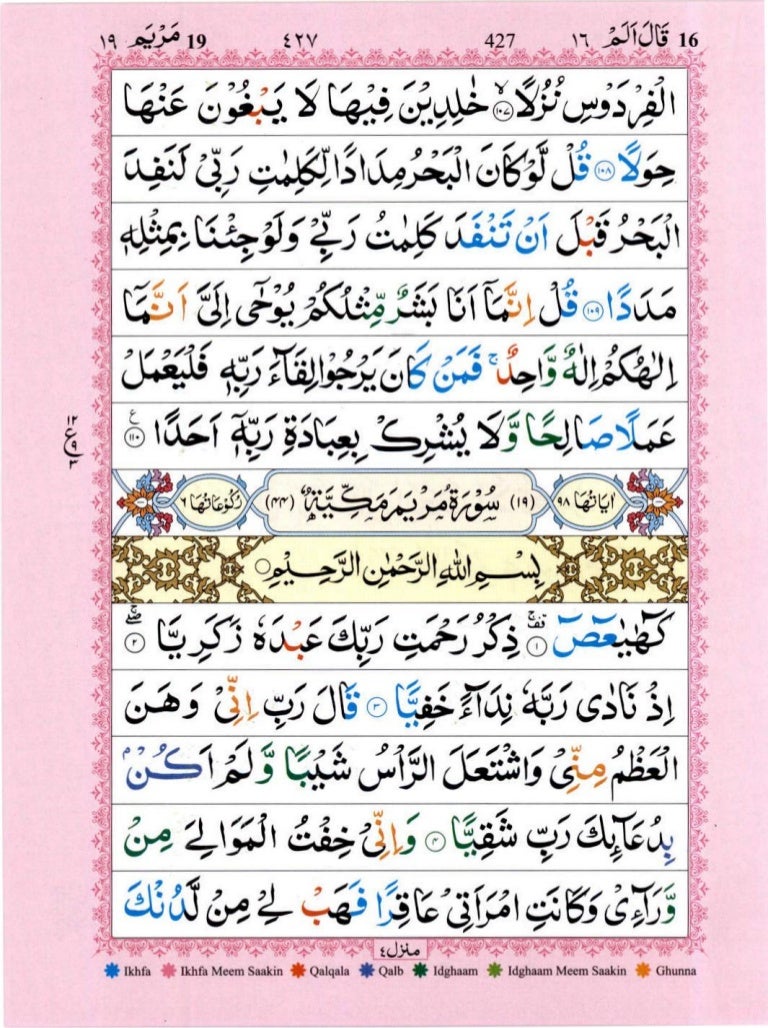 16 قَالَ اَلَمْ ١٦ 427 ٤٢٧ 19 مَرْيَم ١٩
الْفِرْدَوْسِ نُزُلًا ۙ‏﴿۱۰۷﴾ خٰلِدِيْنَ فِيْهَا لَا يَبْغُوْنَ عَنْهَا
حِوَلًا ﴿۱۰۸﴾ قُلْ لَّوْ كَانَ الْبَحْرُ مِدَادًا لِّكَلِمٰتِ رَبِّىْ لَنَفِدَ
الْبَحْرُ قَبْلَ اَنْ تَنْفَدَ كَلِمٰتُ رَبِّىْ وَلَوْ جِئْنَا بِمِثْلِهٖ
مَدَدًا ﴿۱۰۹﴾ قُلْ اِنَّمَاۤ اَنَا بَشَرٌ مِّثْلُكُمْ يُوْحٰٓى اِلَىَّ اَنَّمَاۤ
اِلٰهُكُمْ اِلٰهٌ وَّاحِدٌ ۚ فَمَنْ كَانَ يَرْجُوْا لِقَآءَ رَبِّهٖ فَلْيَعْمَلْ
عَمَلًا صَالِحًا وَّلَا يُشْرِكْ بِعِبَادَةِ رَبِّهٖۤ اَحَدًا ﴿۱۱۰﴾ ع
١٢ ع ٩ ٣
اٰيَاتُهَا ٩٨ (١٩) سُوْرَةُ مَرْيَمَ مَكِّيَّةٌ (٤٤) رُكُوْعَاتُهَا ٦
بِسْمِ اللهِ الرَّحْمٰنِ الرَّحِيْمِ
كٓهٰيٰعٓصٓ ۚ قف ﴿۱﴾ ذِكْرُ رَحْمَتِ رَبِّكَ عَبْدَهٗ زَكَرِيَّا ۖ ۚ ﴿۲﴾
اِذْ نَادٰى رَبَّهٗ نِدَآءً خَفِيًّا ﴿۳﴾ قَالَ رَبِّ اِنِّىْ وَهَنَ
الْعَظْمُ مِنِّىْ وَاشْتَعَلَ الرَّاْسُ شَيْبًا وَّلَمْ اَكُنْۢ
بِدُعَآئِكَ رَبِّ شَقِيًّا ﴿۴﴾ وَاِنِّىْ خِفْتُ الْمَوَالِىَ مِنْ
وَّرَآءِىْ وَكَانَتِ امْرَاَتِىْ عَاقِرًا فَهَبْ لِىْ مِنْ لَّدُنْكَ
منزل ٤
Ikhfa Ikhfa Meem Saakin Qalqala Qalb Idghaam Idghaam Meem Saakin Ghunna